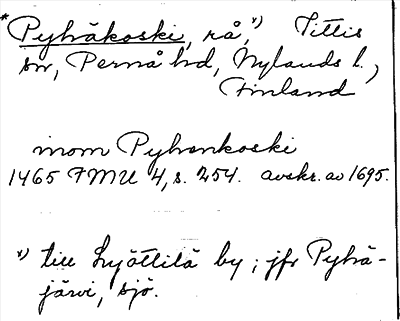 *Pyhäkoski, rå,ˣ⁾ Tittis
sn, Pernå hd, Nylands l.,
Finland
inom Pyhenkoski
1465 FMU 4, s. 254. avskr. av 1695.
ˣ⁾ till Lyöttilä by; jfr Pyhä-
järvi, sjö.